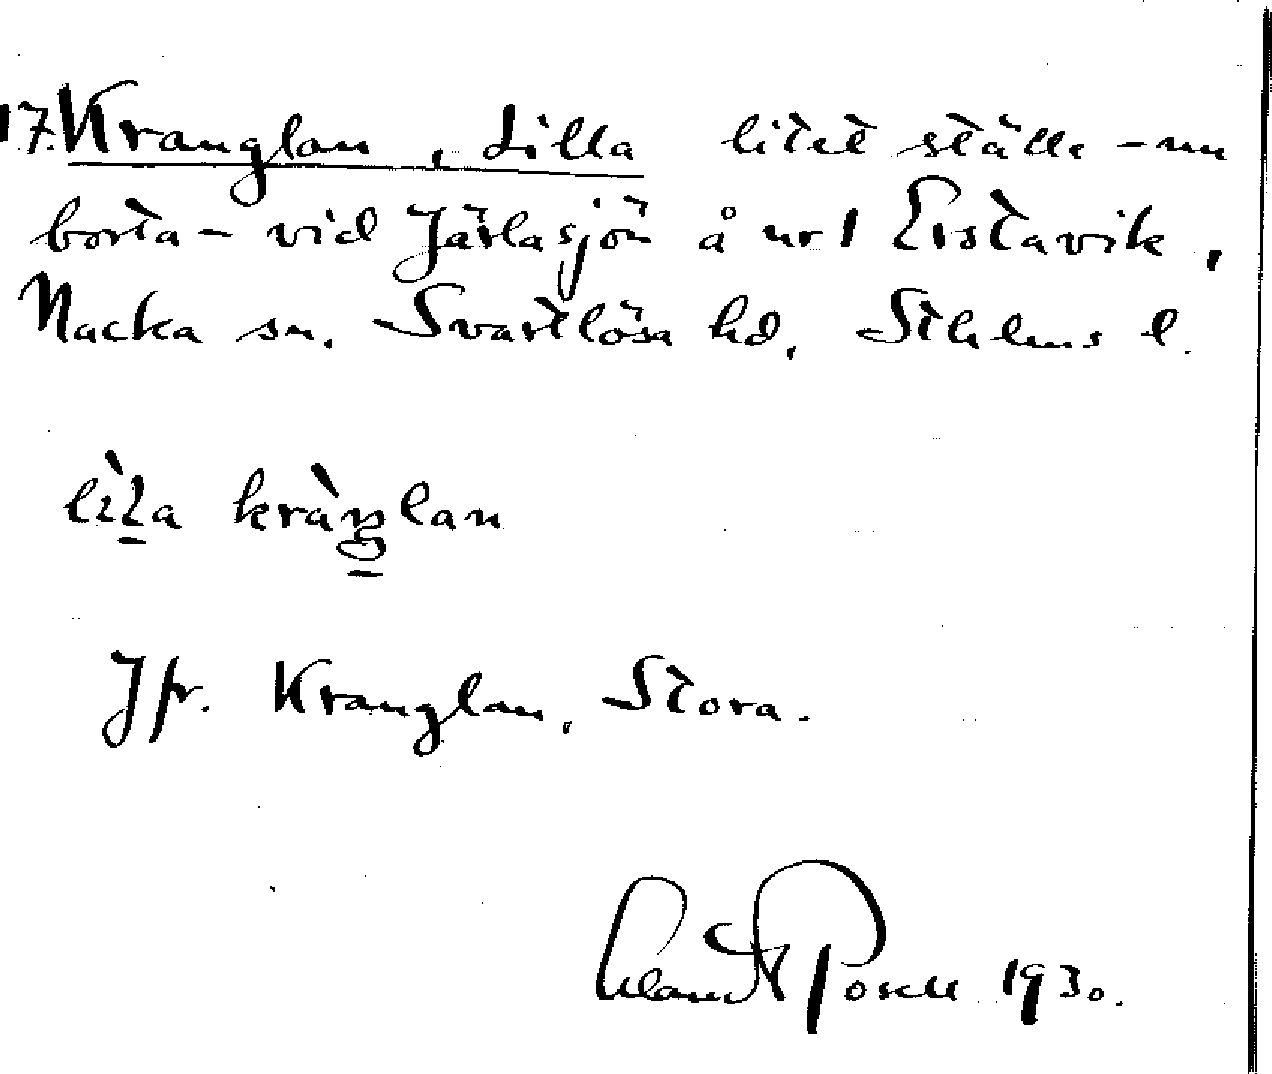 17. Kranglan, Lilla litet ställe – nu
borta – vid Järlasjön å nr 1 Erstavik,
Nacka sn. Svartlösa hd, Sthlms l.
lìl̠a kràŋ̠lan
Jfr. Kranglan, Stora.
Posse 1930.